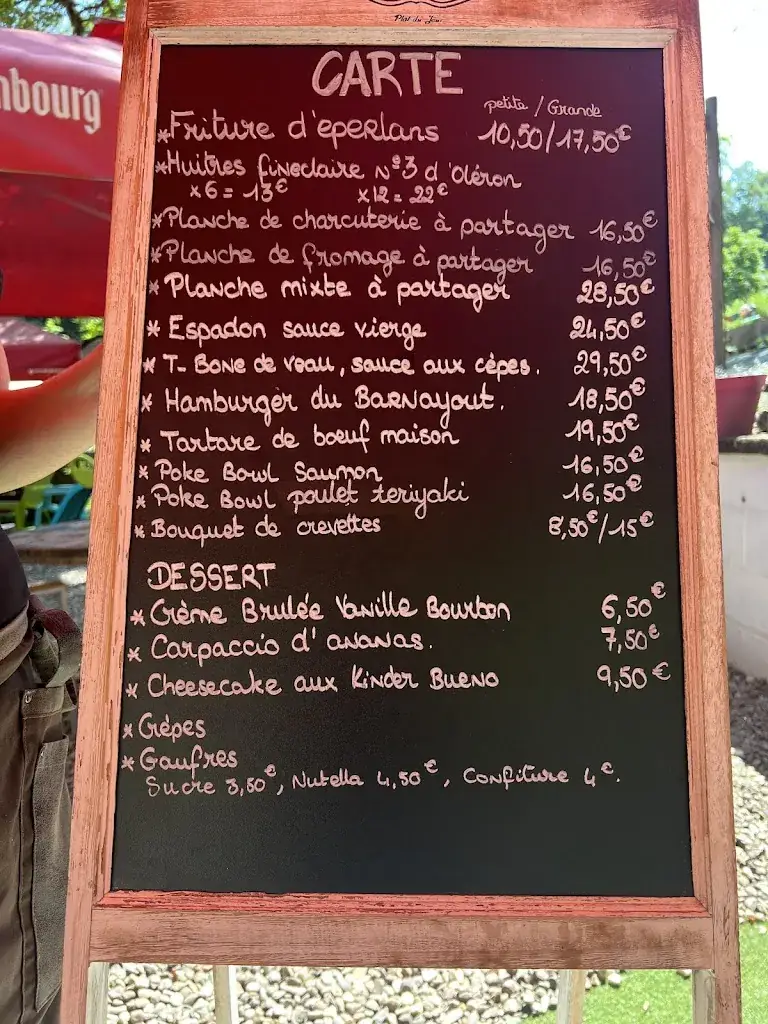 Plat du Jour
nbourg
CARTE
petite / Grande
*Friture d'éperlans 10,50/17,50€
*Huitres fineclaire N°3 d'Oléron
x6 = 13€ x12 = 22€
*Planche de charcuterie à partager 16,50€
*Planche de fromage à partager 16,50€
* Planche mixte à partager 28,50€
* Espadon sauce vierge 24,50€
* T-Bone de veau, sauce aux cèpes. 29,50€
* Hamburger du BARNAyout. 18,50€
* Tartare de boeuf maison 19,50€
* Poke Bowl Saumon 16,50€
* Poke Bowl poulet teriyaki 16,50€
* Bouquet de crevettes 8,50€/15€
DESSERT
* Crème Brulée Vanille Bourbon 6,50€
* Carpaccio d'ANANAS. 7,50€
* Cheesecake aux Kinder Bueno 9,50€
* Crêpes
* Gaufres
Sucre 3,50€, Nutella 4,50€, Confiture 4€.